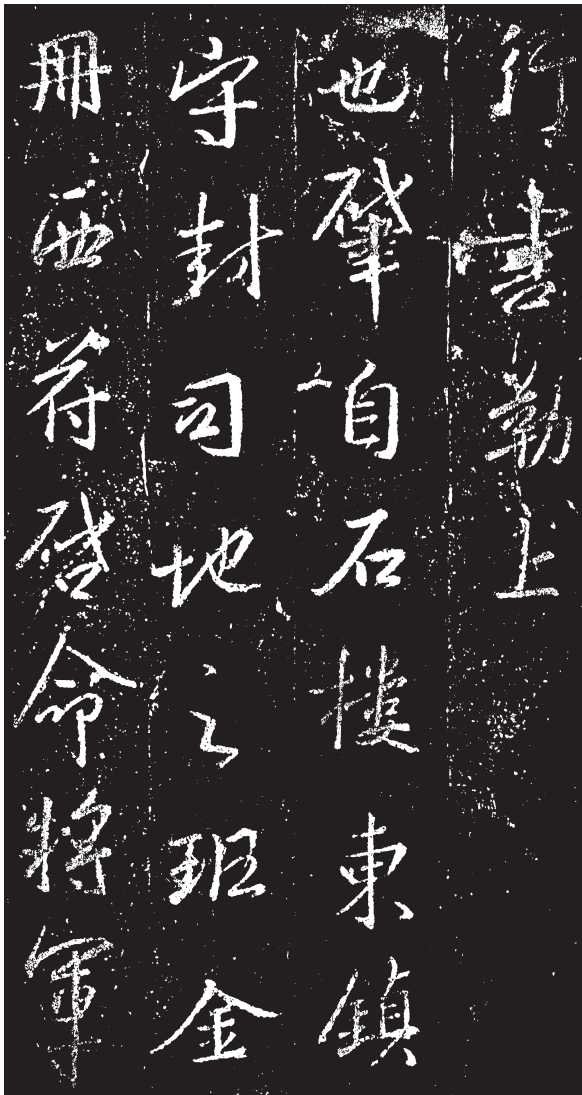 行書勒上
也肇自石樓東鎮
守封司地之班金
冊西符啓命將軍